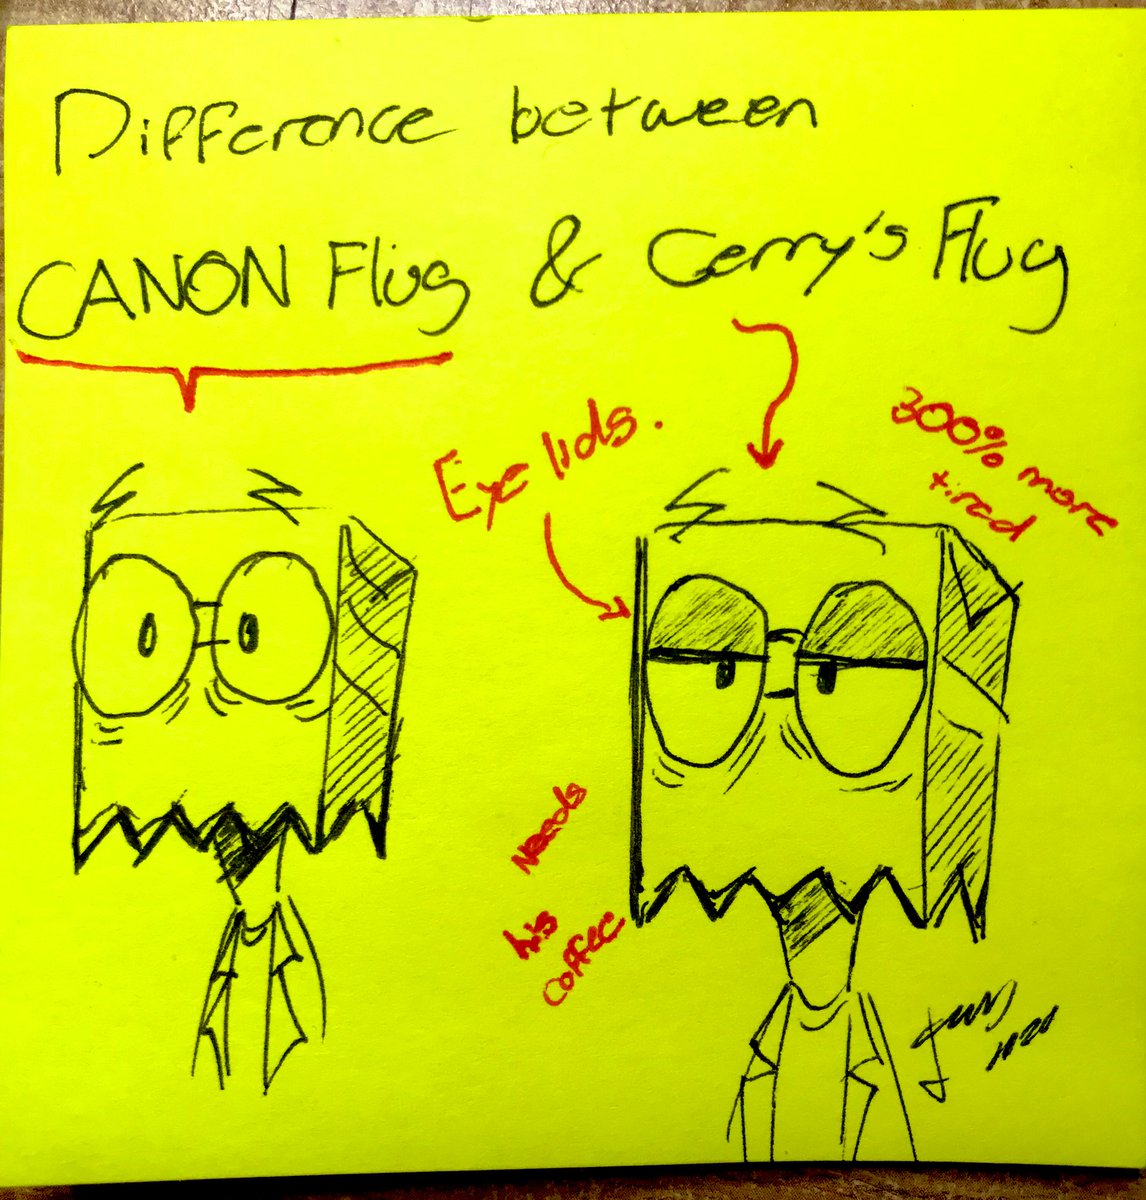 Difference between
CANON Flug & Gerry's Flug
Eye lids.
300% more
tired
Needs
his
coffee